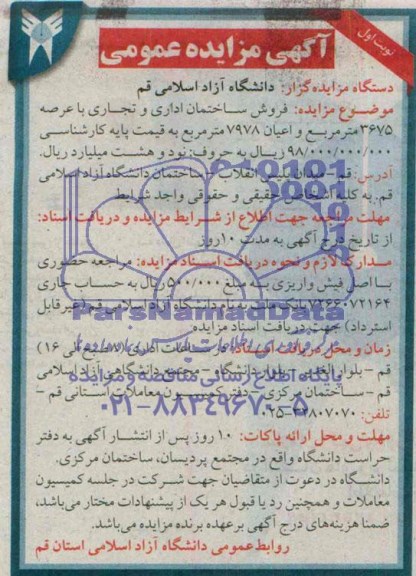 نوبت اول
آگهی مزایده عمومی
دستگاه مزایده گزار: دانشگاه آزاد اسلامی قم
موضوع مزایده: فروش ساختمان اداری و تجاری با عرصه
۳۶۷۵ مترمربع و اعیان ۷۹۷۸ مترمربع به قیمت پایه کارشناسی
۹۸/۰۰۰/۰۰۰/۰۰۰ ریال به حروف: نود و هشت میلیارد ریال.
آدرس: قم - میدان پلیس انقلاب - ساختمان دانشگاه آزاد اسلامی
قم. به کلیه اشخاص حقیقی و حقوقی واجد شرایط
مهلت مراجعه جهت اطلاع از شرایط مزایده و دریافت اسناد:
از تاریخ درج آگهی به مدت ۱۰ روز
مدارک لازم و نحوه دریافت اسناد مزایده: مراجعه حضوری
با اصل فیش واریزی به مبلغ ۵۰۰/۰۰۰ ریال به حساب جاری
بانک ملی به نام دانشگاه آزاد اسلامی قم (غیر قابل
ParsNamadData
استرداد) جهت دریافت اسناد مزایده.
زمان و محل دریافت اسناد: در ساعات اداری
پایگاه اطلاع رسانی مناقصه و مزایده
قم - بلوار - دانشگاه - مجتمع دانشگاهی آزاد اسلامی
قم - ساختمان مرکزی - دفتر کمیسیون معاملات استانی قم -
۰۲۱-۸۸۳۴۹۶۷۰-۵
تلفن:
مهلت و محل ارائه پاکات: ۱۰ روز پس از انتشار آگهی به دفتر
حراست دانشگاه واقع در مجتمع پردیسان، ساختمان مرکزی.
دانشگاه در دعوت از متقاضیان جهت شرکت در جلسه کمیسیون
معاملات و همچنین رد یا قبول هر یک از پیشنهادات مختار می‌باشد،
ضمنا هزینه‌های درج آگهی بر عهده برنده مزایده می‌باشد.
روابط عمومی دانشگاه آزاد اسلامی استان قم